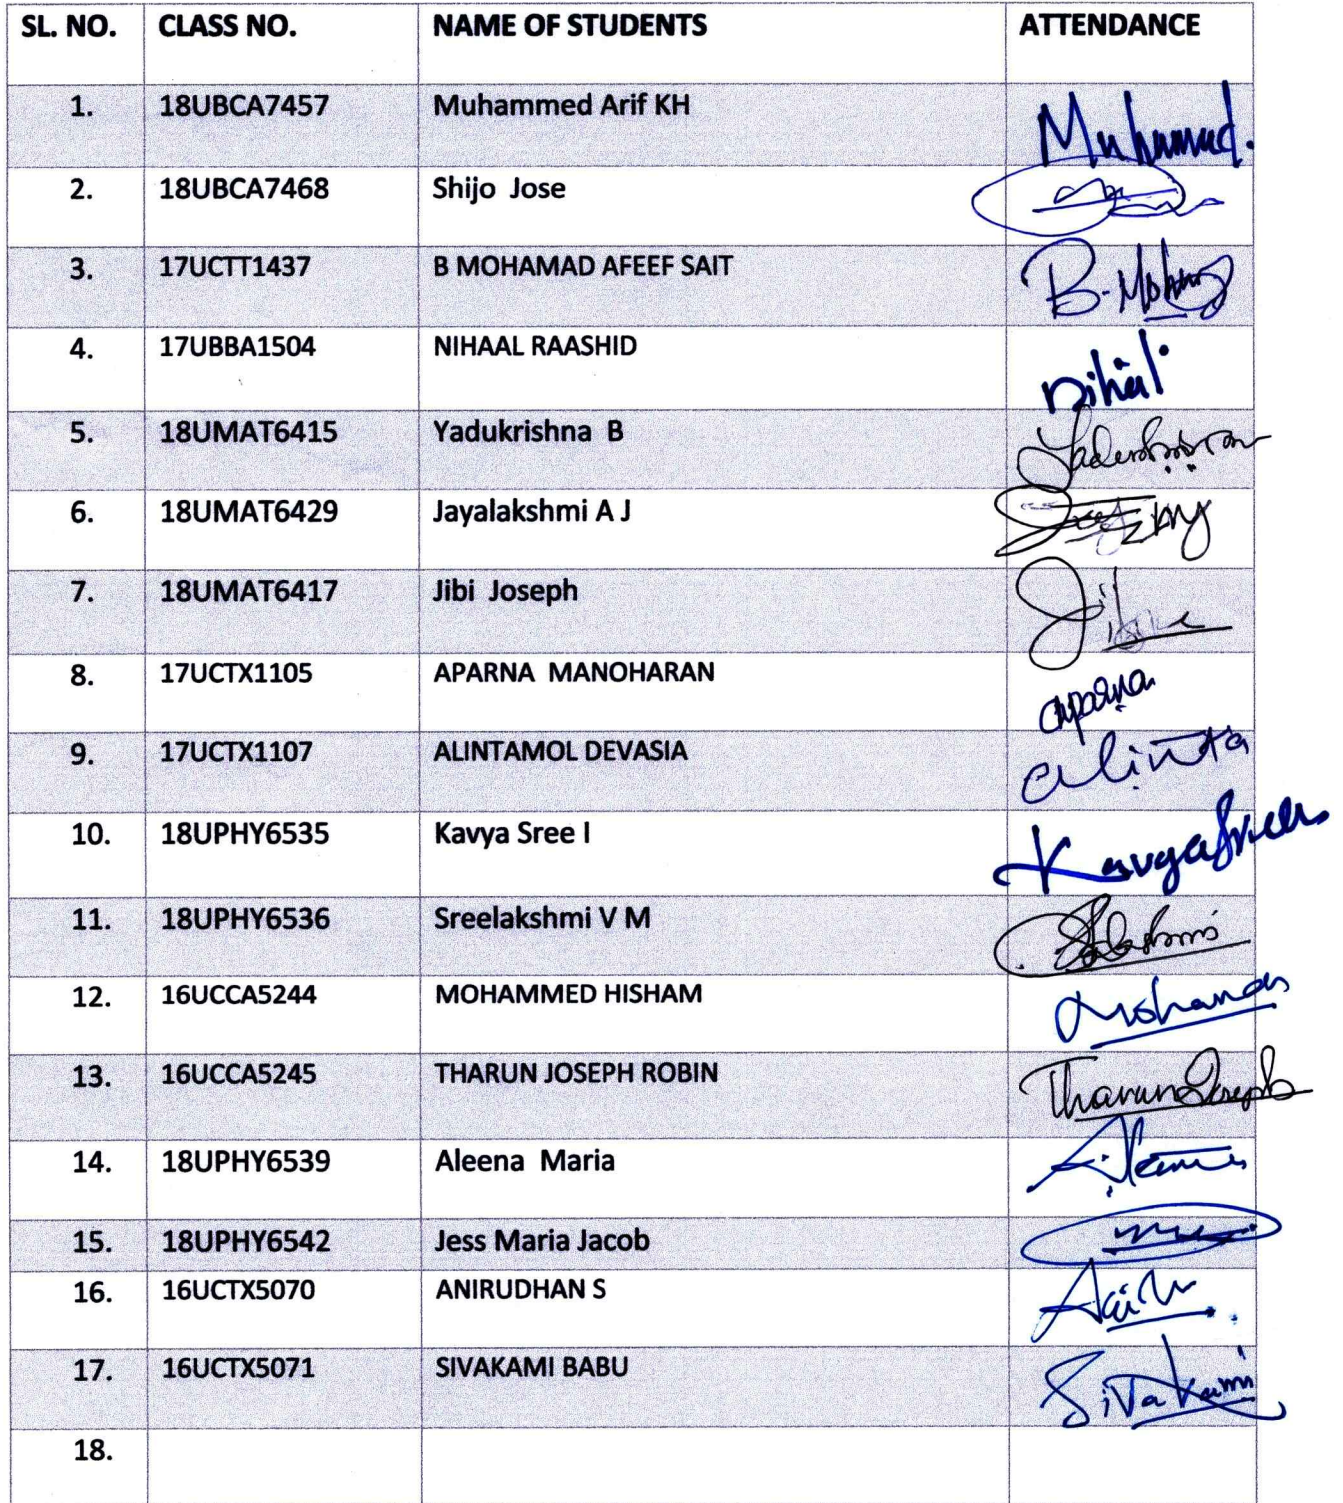 SL. NO. CLASS NO. NAME OF STUDENTS ATTENDANCE
1. 18UBCA7457 Muhammed Arif KH Muhamud.
2. 18UBCA7468 Shijo Jose
3. 17UCTT1437 B MOHAMAD AFEEF SAIT
4. 17UBBA1504 NIHAAL RAASHID
5. 18UMAT6415 Yadukrishna B
6. 18UMAT6429 Jayalakshmi A J
7. 18UMAT6417 Jibi Joseph
8. 17UCTX1105 APARNA MANOHARAN aparna
9. 17UCTX1107 ALINTAMOL DEVASIA alinta
10. 18UPHY6535 Kavya Sree I
11. 18UPHY6536 Sreelakshmi V M
12. 16UCCA5244 MOHAMMED HISHAM
13. 16UCCA5245 THARUN JOSEPH ROBIN Tharun Joseph
14. 18UPHY6539 Aleena Maria
15. 18UPHY6542 Jess Maria Jacob
16. 16UCTX5070 ANIRUDHAN S
17. 16UCTX5071 SIVAKAMI BABU Sivakami
18.